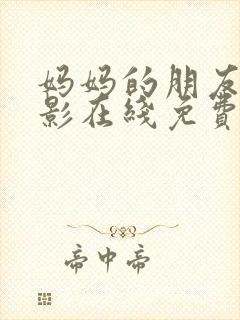 妈妈的朋友
影在线免费
帝中帝